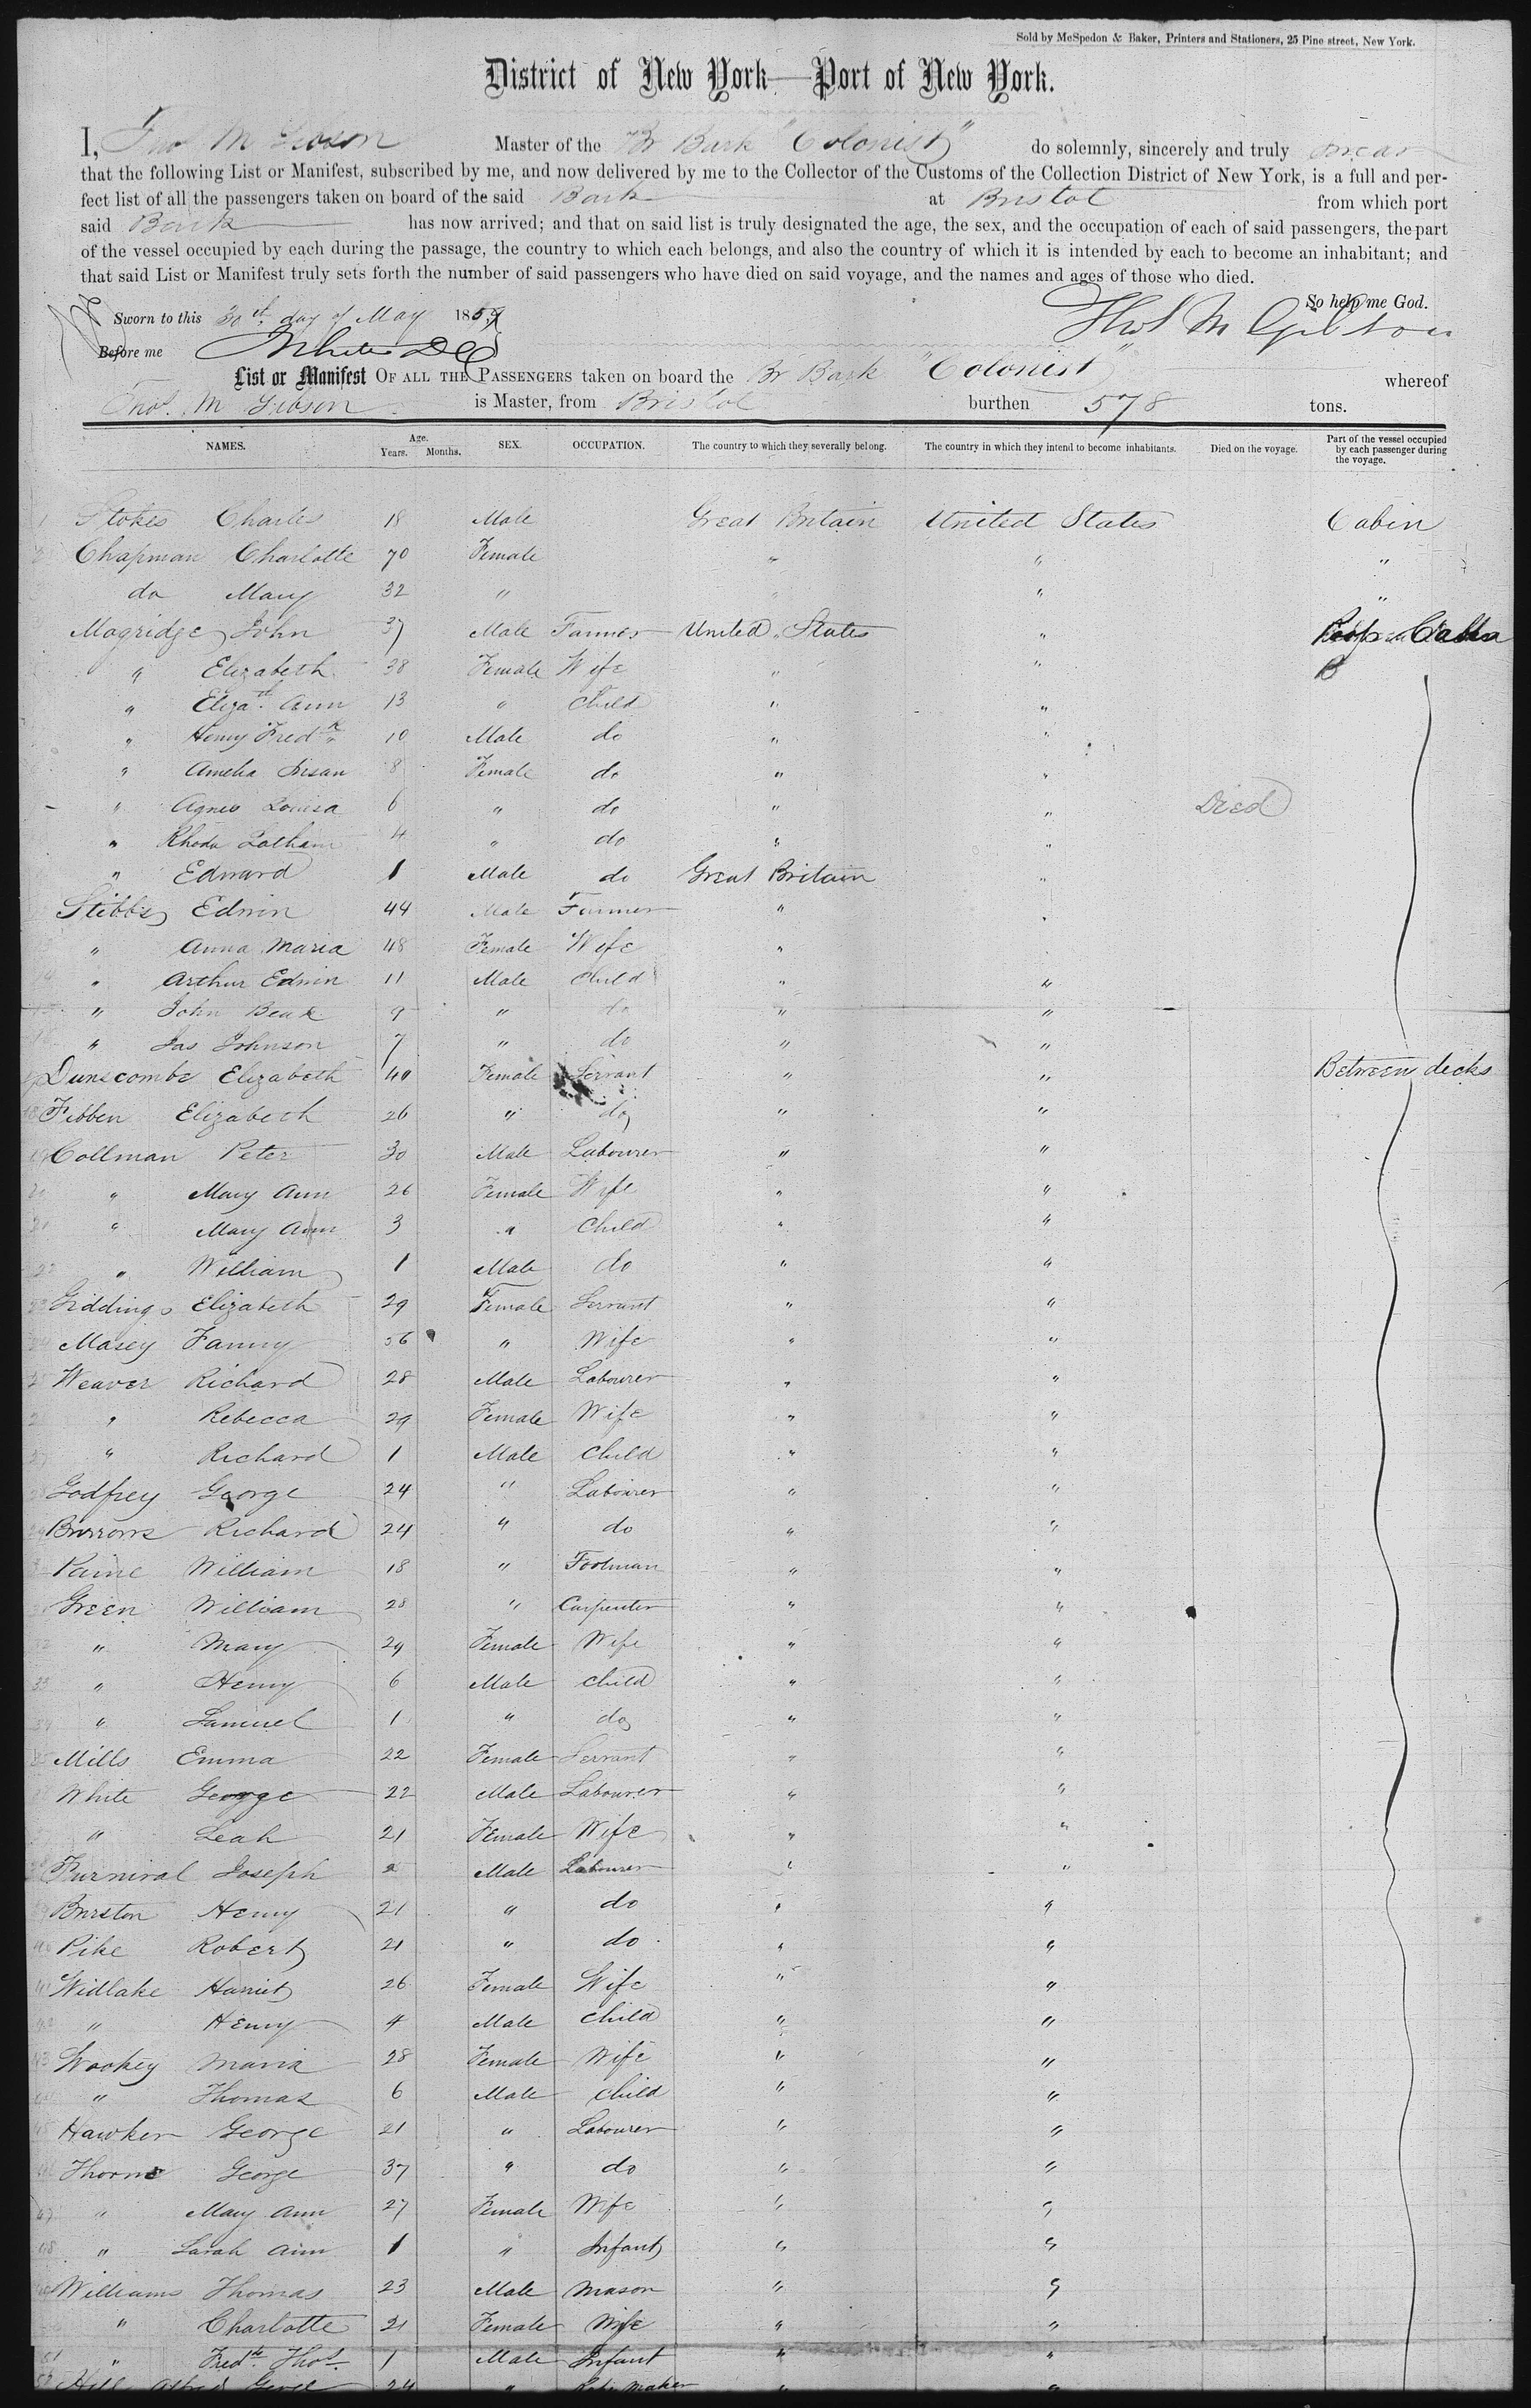 Sold by McSpedon & Baker, Printers and Stationers, 25 Pine street, New York.
District of New York—Port of New York.
I, Thos M Gibson Master of the Br Bark "Colonist" do solemnly, sincerely and truly swear
that the following List or Manifest, subscribed by me, and now delivered by me to the Collector of the Customs of the Collection District of New York, is a full and per-
fect list of all the passengers taken on board of the said Bark at Bristol from which port
said Bark has now arrived; and that on said list is truly designated the age, the sex, and the occupation of each of said passengers, the part
of the vessel occupied by each during the passage, the country to which each belongs, and also the country of which it is intended by each to become an inhabitant; and
that said List or Manifest truly sets forth the number of said passengers who have died on said voyage, and the names and ages of those who died.
So help me God.
Sworn to this 30th day of May 1859 Thos M Gibson
Before me
List or Manifest OF ALL THE PASSENGERS taken on board the Br Bark "Colonist" whereof
Thos. M Gibson is Master, from Bristol burthen 578 tons.
NAMES. Age. Years. Months. SEX. OCCUPATION. The country to which they severally belong. The country in which they intend to become inhabitants. Died on the voyage. Part of the vessel occupied by each passenger during the voyage.
1 Stokes Charles 18 Male Great Britain United States Cabin
Chapman Charlotte 70 Female " " "
do Mary 32 " " " "
Mogridge John 37 Male Farmer United States "
" Elizabeth 38 Female Wife " "
" Elizath Ann 13 " Child " "
" Henry Fredk 10 Male do " "
" Amelia Susan 8 Female do " "
" Agnes Louisa 6 " do " " Died
" Rhoda Latham 4 " do " "
" Edward 1 Male do Great Britain "
Stibbs Edwin 44 Male Farmer " "
" Anna Maria 48 Female Wife "
" Arthur Edwin 11 Male Child " "
" John Beak 9 " do " "
" Jas Johnson 7 " do " "
Dunscombe Elizabeth 40 Female Servant " " Between decks
18 Fibben Elizabeth 26 " do " "
19 Collman Peter 30 Male Labourer " "
20 " Mary Ann 26 Female Wife " "
21 " Mary Ann 3 " Child " "
22 " William 1 Male do " "
23 Giddings Elizabeth 29 Female Servant " "
Masey Fanny 36 " Wife " "
25 Weaver Richard 28 Male Labourer " "
" Rebecca 29 Female Wife " "
27 " Richard 1 Male Child " "
Godfrey George 24 " Labourer " "
29 Burrows Richard 24 " do " "
Paine William 18 " Footman " "
Green William 28 " Carpenter " "
32 " Mary 29 Female Wife " "
33 " Henry 6 Male Child " "
34 " Samuel 1 " do " "
35 Mills Emma 22 Female Servant " "
White George 22 Male Labourer " "
" Leah 21 Female Wife " "
38 Furnival Joseph Male Labourer " "
Burston Henry 21 " do " "
40 Pike Robert 21 " do " "
41 Widlake Harriet 26 Female Wife " "
42 " Henry 4 Male Child " "
43 Wookey Maria 28 Female Wife " "
" Thomas 6 Male Child " "
45 Hawker George 21 " Labourer " "
Thorne George 37 " do " "
47 " Mary Ann 27 Female Wife " "
48 " Sarah Ann 1 " Infant " "
Williams Thomas 23 Male Mason " "
" Charlotte 21 Female Wife " "
51 " Fredk Thos. 1 Male Infant " "
52 Hill Alfred 24 " Maker " "